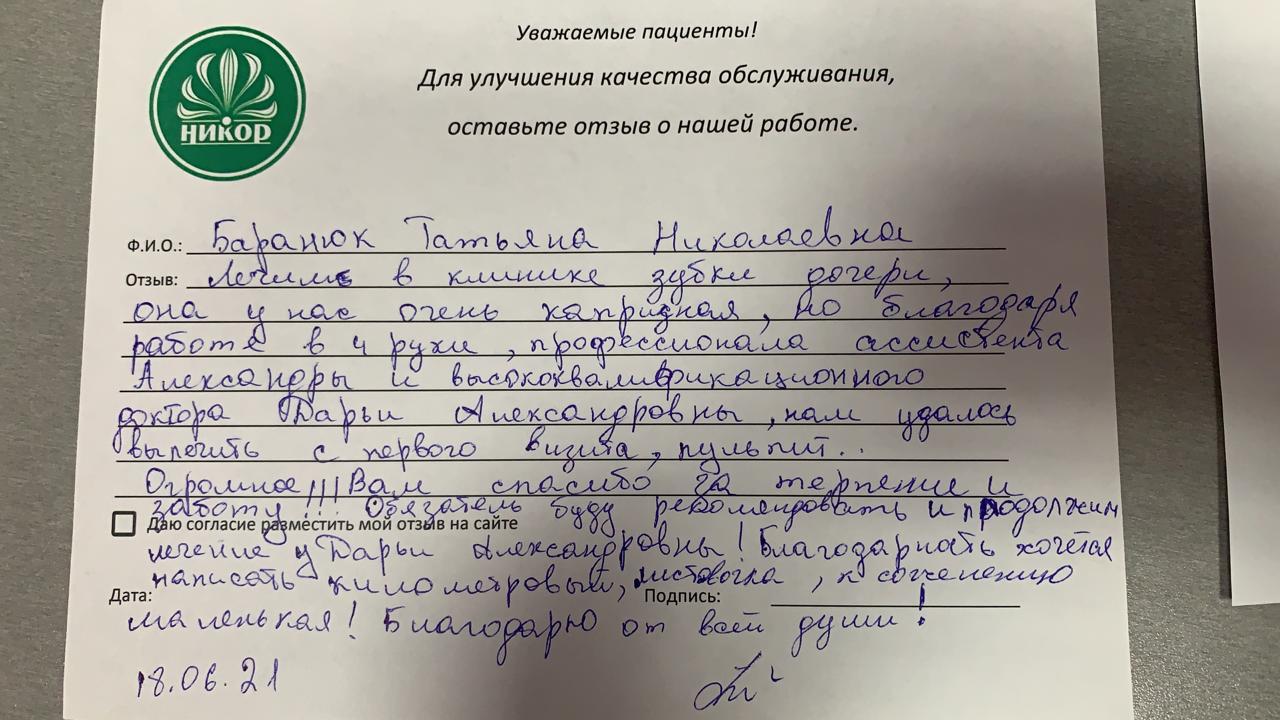 НИКОР
Уважаемые пациенты!
Для улучшения качества обслуживания,
оставьте отзыв о нашей работе.
Ф.И.О.: Баранюк Татьяна Николаевна
Отзыв: Лечили в клинике зубки дочери,
она у нас очень капризная, но благодаря
работе в 4 руки, профессионала ассистента
Александры и высококвалификационного
доктора Дарьи Александровны, нам удалось
вылечить с первого визита, пульпит..
Огромное!!! Вам спасибо за терпение и
заботу!!! Обязатель буду рекомендовать и продолжим
Даю согласие разместить мой отзыв на сайте
лечение у Дарьи Александровны! Благодарность хочется
написать километровый, листовочка, к сожелению
Дата: Подпись:
маленькая! Благодарю от всей души!
18.06.21